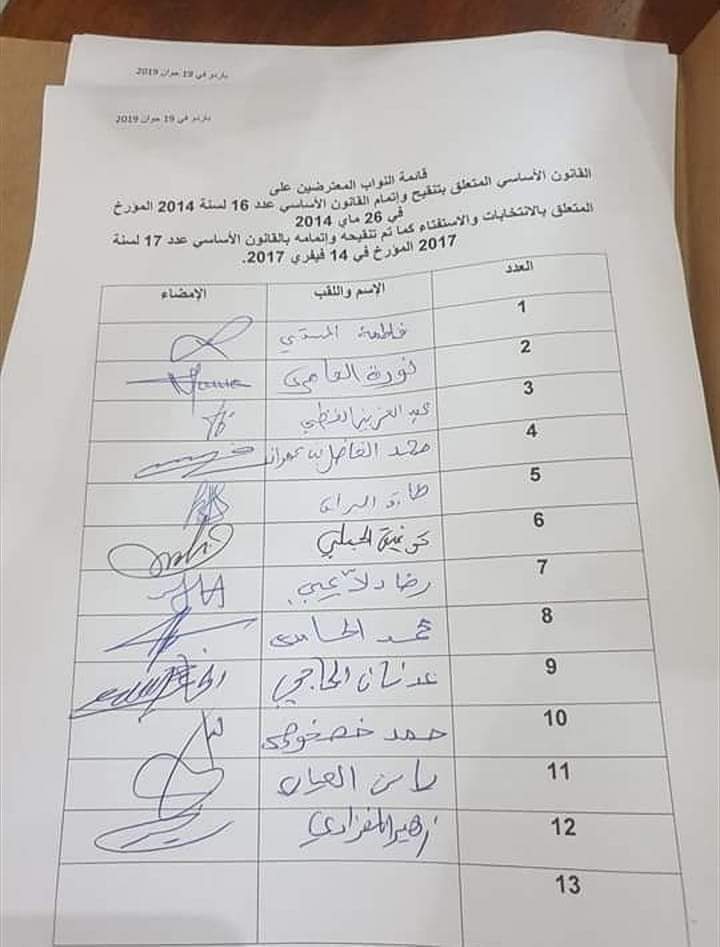 باردو في 19 جوان 2019
باردو في 19 جوان 2019
قائمة النواب المعترضين على
القانون الأساسي المتعلق بتنقيح وإتمام القانون الأساسي عدد 16 لسنة 2014 المؤرخ
في 26 ماي 2014
المتعلق بالانتخابات والاستفتاء كما تم تنقيحه وإتمامه بالقانون الأساسي عدد 17 لسنة
2017 المؤرخ في 14 فيفري 2017.
العدد الإسم واللقب الإمضاء
1 فاطمة المسدي
2 نورة العامري
3 عبد العزيز القطي
4 محمد الفاضل بن عمران
5 طارق
6 توفيق الجملي
7 رضا دلاعي
8 محمد الحامدي
9 عدنان الحاجي
10 حمد خصخوصي
11
12 زهير المغزاوي
13